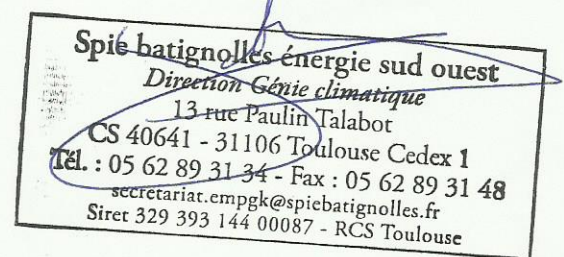 Spie batignolles énergie sud ouest
Direction Génie climatique
13 rue Paulin Talabot
CS 40641 - 31106 Toulouse Cedex 1
Tél. : 05 62 89 31 34 - Fax : 05 62 89 31 48
secretariat.empgk@spiebatignolles.fr
Siret 329 393 144 00087 - RCS Toulouse